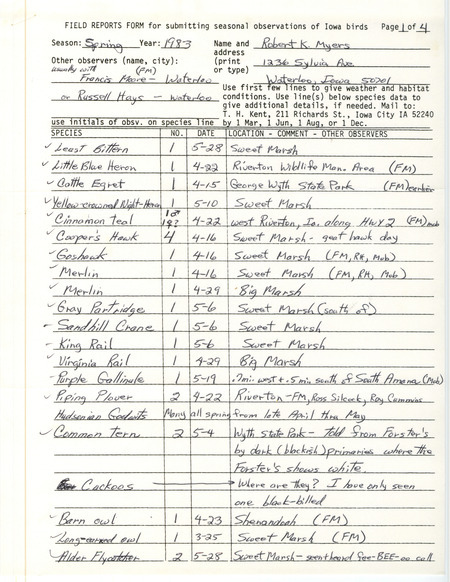 FIELD REPORTS FORM for submitting seasonal observations of Iowa birds Page 1 of 4
Season: Spring Year: 1983 Name and address (print or type) Robert K. Myers
Other observers (name, city): 1236 Sylvia Ave.
usually with (FM) Waterloo, Iowa 50701
Francis Moore - Waterloo
or Russell Hays - Waterloo
Use first few lines to give weather and habitat
conditions. Use line(s) below species data to
give additional details, if needed. Mail to:
T. H. Kent, 211 Richards St., Iowa City IA 52240
use initials of obsv. on species line by 1 Mar, 1 Jun, 1 Aug, or 1 Dec.
SPECIES NO. DATE LOCATION - COMMENT - OTHER OBSERVERS
✓ Least Bittern 1 5-28 Sweet Marsh
✓ Little Blue Heron 1 4-22 Riverton Wildlife Man. Area (FM)
✓ Cattle Egret 1 4-15 George Wyth State Park (FM) earlier
✓ Yellow-crowned Night-Heron 1 5-10 Sweet Marsh
✓ Cinnamon Teal 1♂ 1♀? 4-22 west Riverton, Ia. along Hwy 2 (FM) mob
✓ Cooper's Hawk 4 4-16 Sweet Marsh - great hawk day
✓ Goshawk 1 4-16 Sweet Marsh (FM, RH, Mob)
✓ Merlin 1 4-16 Sweet Marsh (FM, RH, Mob)
✓ Merlin 1 4-29 Big Marsh
✓ Gray Partridge 1 5-6 Sweet Marsh (south of)
- Sandhill Crane 1 5-6 Sweet Marsh
- King Rail 1 5-6 Sweet Marsh
✓ Virginia Rail 1 4-29 Big Marsh
✓ Purple Gallinule 1 5-19 .7mi. west + .5 mi. south of South Amana (Mob)
✓ Piping Plover 2 4-22 Riverton - FM, Ross Silcock, Ray Cummins
Hudsonian Godwits Many all spring from late April thru May
✓ Common Tern 2 5-4 Wyth State Park - told from Forster's
by dark (blackish) primaries where the
Forster's shows white.
Cuckoos → Where are they? I have only seen
one black-billed
✓ Barn owl 1 4-23 Shenandoah (FM)
✓ Long-eared owl 1 3-25 Sweet Marsh (FM)
✓ Alder Flycatcher 2 5-28 Sweet Marsh - seen + heard fee-BEE-oo call